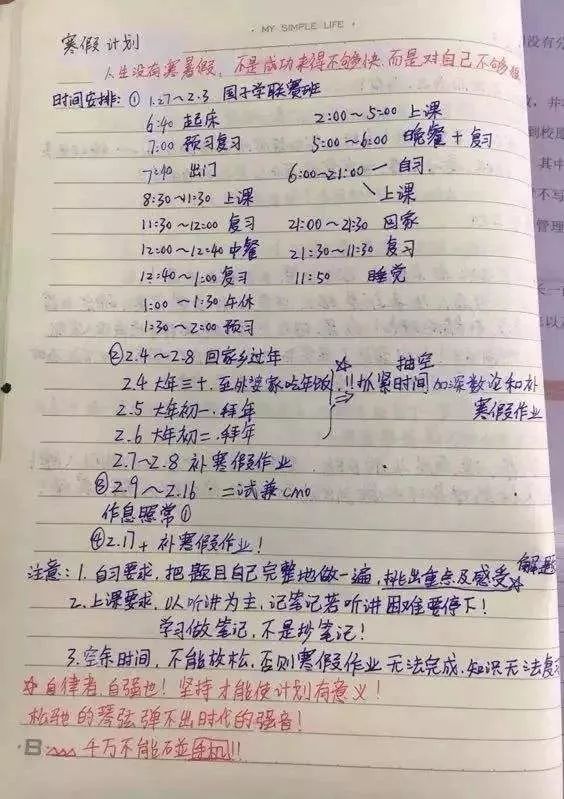 MY SIMPLE LIFE
寒假计划
人生没有寒暑假,不是成功来得不够快,而是对自己不够狠
时间安排:① 1.27~2.3 国子学联赛班
6:40 起床 2:00~5:00 上课
7:00 预习复习 5:00~6:00 晚餐+复习
7:40 出门 6:00~21:00 自习
8:30~11:30 上课 上课
11:30~12:00 复习 21:00~21:30 回家
12:00~12:40 中餐 21:30~11:30 复习
12:40~1:00 复习 11:50 睡觉
1:00~1:30 午休
1:30~2:00 预习
②2.4~2.8 回家乡过年 抽空
2.4 大年三十.至外婆家吃年饭 !!抓紧时间加深数论和补
2.5 大年初一.拜年 寒假作业
2.6 大年初二.拜年
2.7~2.8 补寒假作业
③2.9~2.16.二试兼cmo
作息照常①
④2.17+ 补寒假作业!
注意:1.自习要求,把题目自己完整地做一遍,挑出重点及感受 解题
2.上课要求,以听讲为主,记笔记若听讲困难要停下!
学习做笔记,不是抄笔记!
3.空余时间,不能放松,否则寒假作业无法完成,知识无法复
☆自律者,自强也!坚持才能使计划有意义!
松弛的琴弦弹不出时代的强音!
B: 千万不能碰手机!!